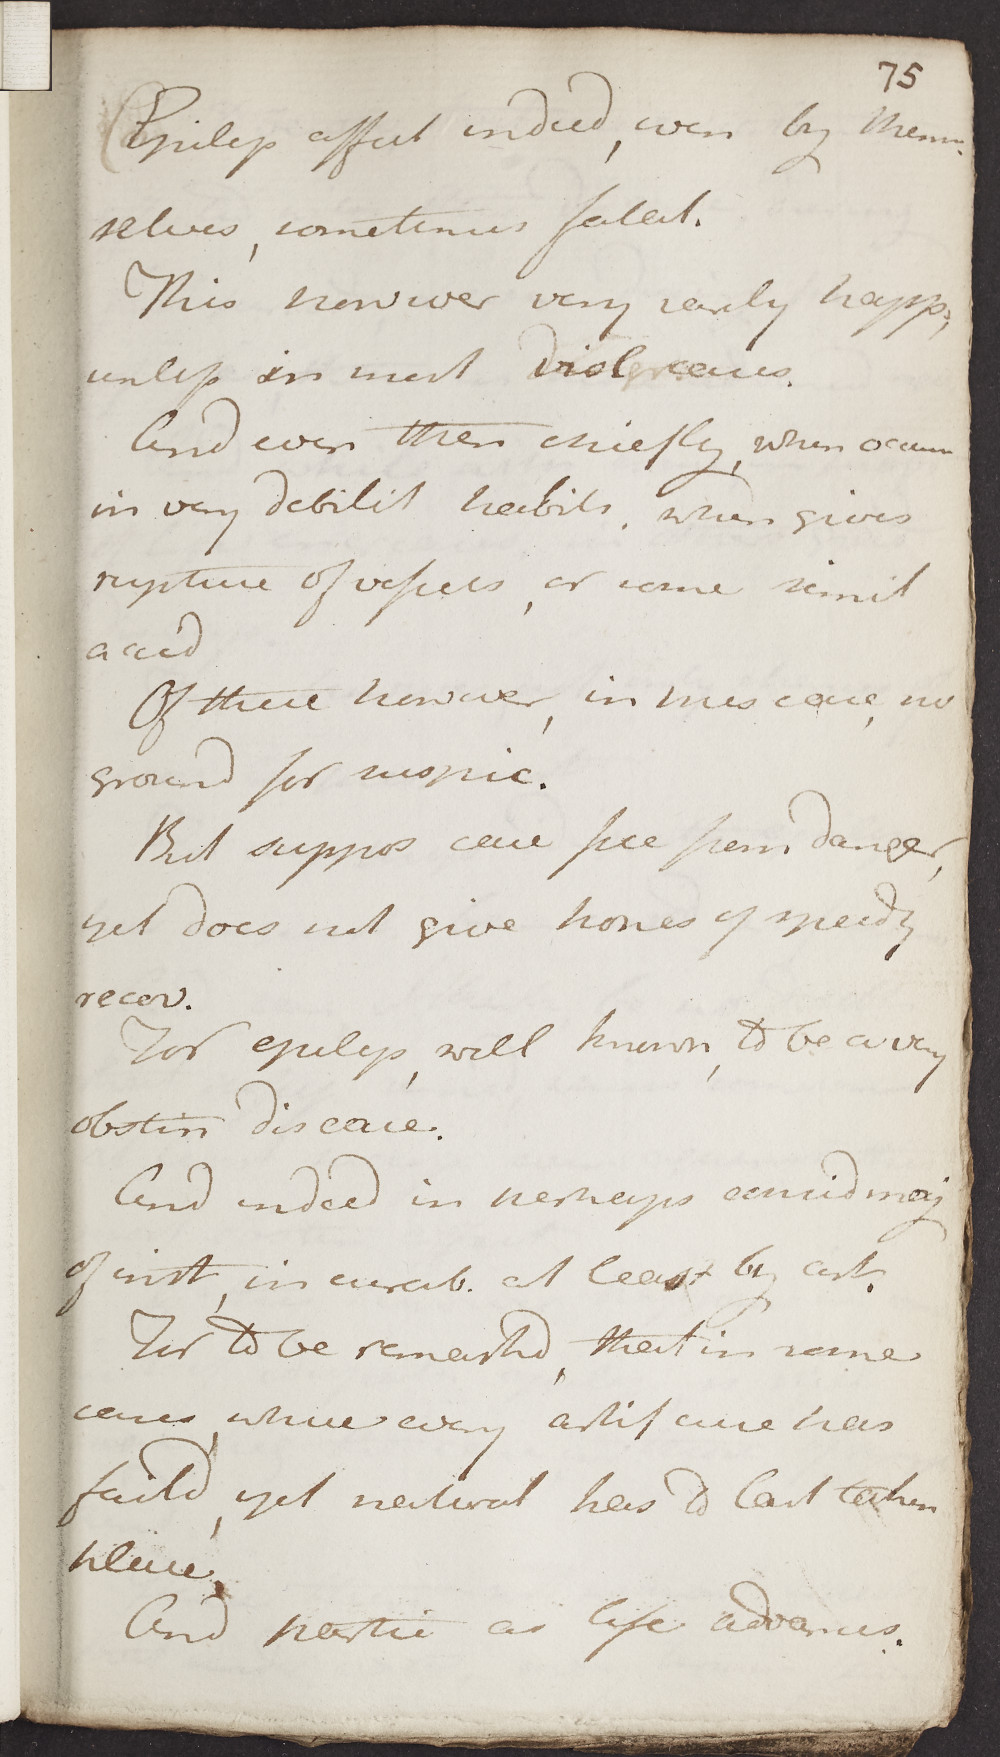 75
Epilep affect indeed, even by them-
selves, sometimes fatal.
This however very rarely happs,
unless in most viol cases.
And even then chiefly, when occurr
in very debilit habits, when gives
rupture of vessels, or some simil
accid
Of these however, in this case, no
ground for suspic.
But suppos case free from danger,
yet does not give hopes of speedy
recov.
For epilep, well known, to be a very
obstin disease.
And indeed in perhaps considmaj
of inst, incurab. at least by art.
For to be remarkd, that in some
cases, where every artif cure has
faild, yet natural has to last taken
place,
And partic as life advances.